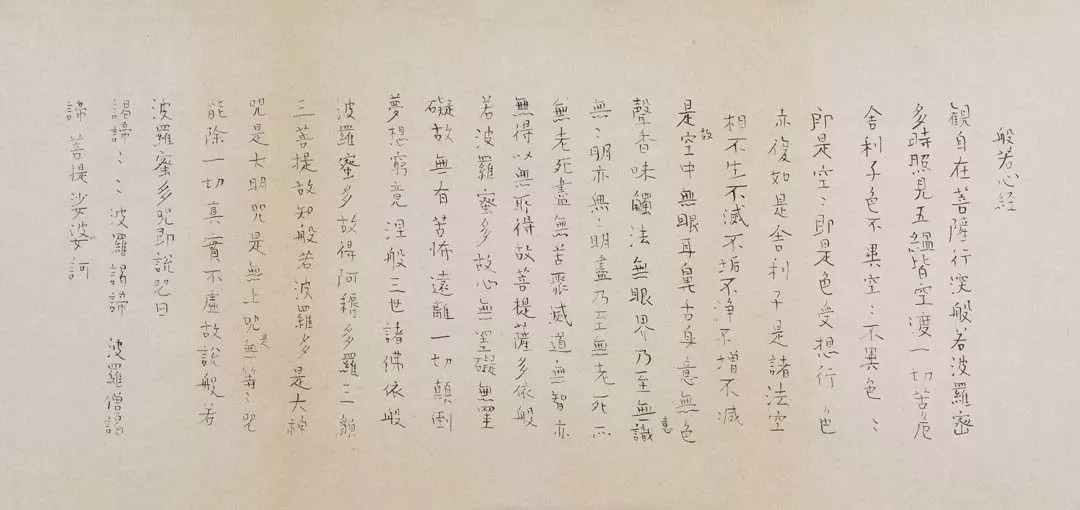 般若心経
観自在菩薩行深般若波羅密
多時照見五緼皆空渡一切苦厄
舎利子色不異空〻不異色〻
即是空〻即是色受想行
亦復如是舎利子是諸法空
相不生不滅不垢不浄不增不減
是故空中無眼耳鼻舌身意無色
聲香味觸法無眼界乃至無意識
無〻明亦無〻明盡乃至無老死亦
無老死盡無苦聚滅道無智亦
無得以無所得故菩提薩多依般
若波羅蜜多故心無罣礙無罣
礙故無有苦怖遠離一切顛倒
夢想窮竟涅般三世諸佛依般
波羅蜜多故得阿穆多羅三貌
三菩提故知般若波羅多是大神
咒是大明咒是無上咒是無等〻咒
能除一切真實不虛故說般若
波羅蜜多咒即說咒曰
謁諦〻〻波羅謁諦 波羅僧謁
諦 菩提娑婆訶